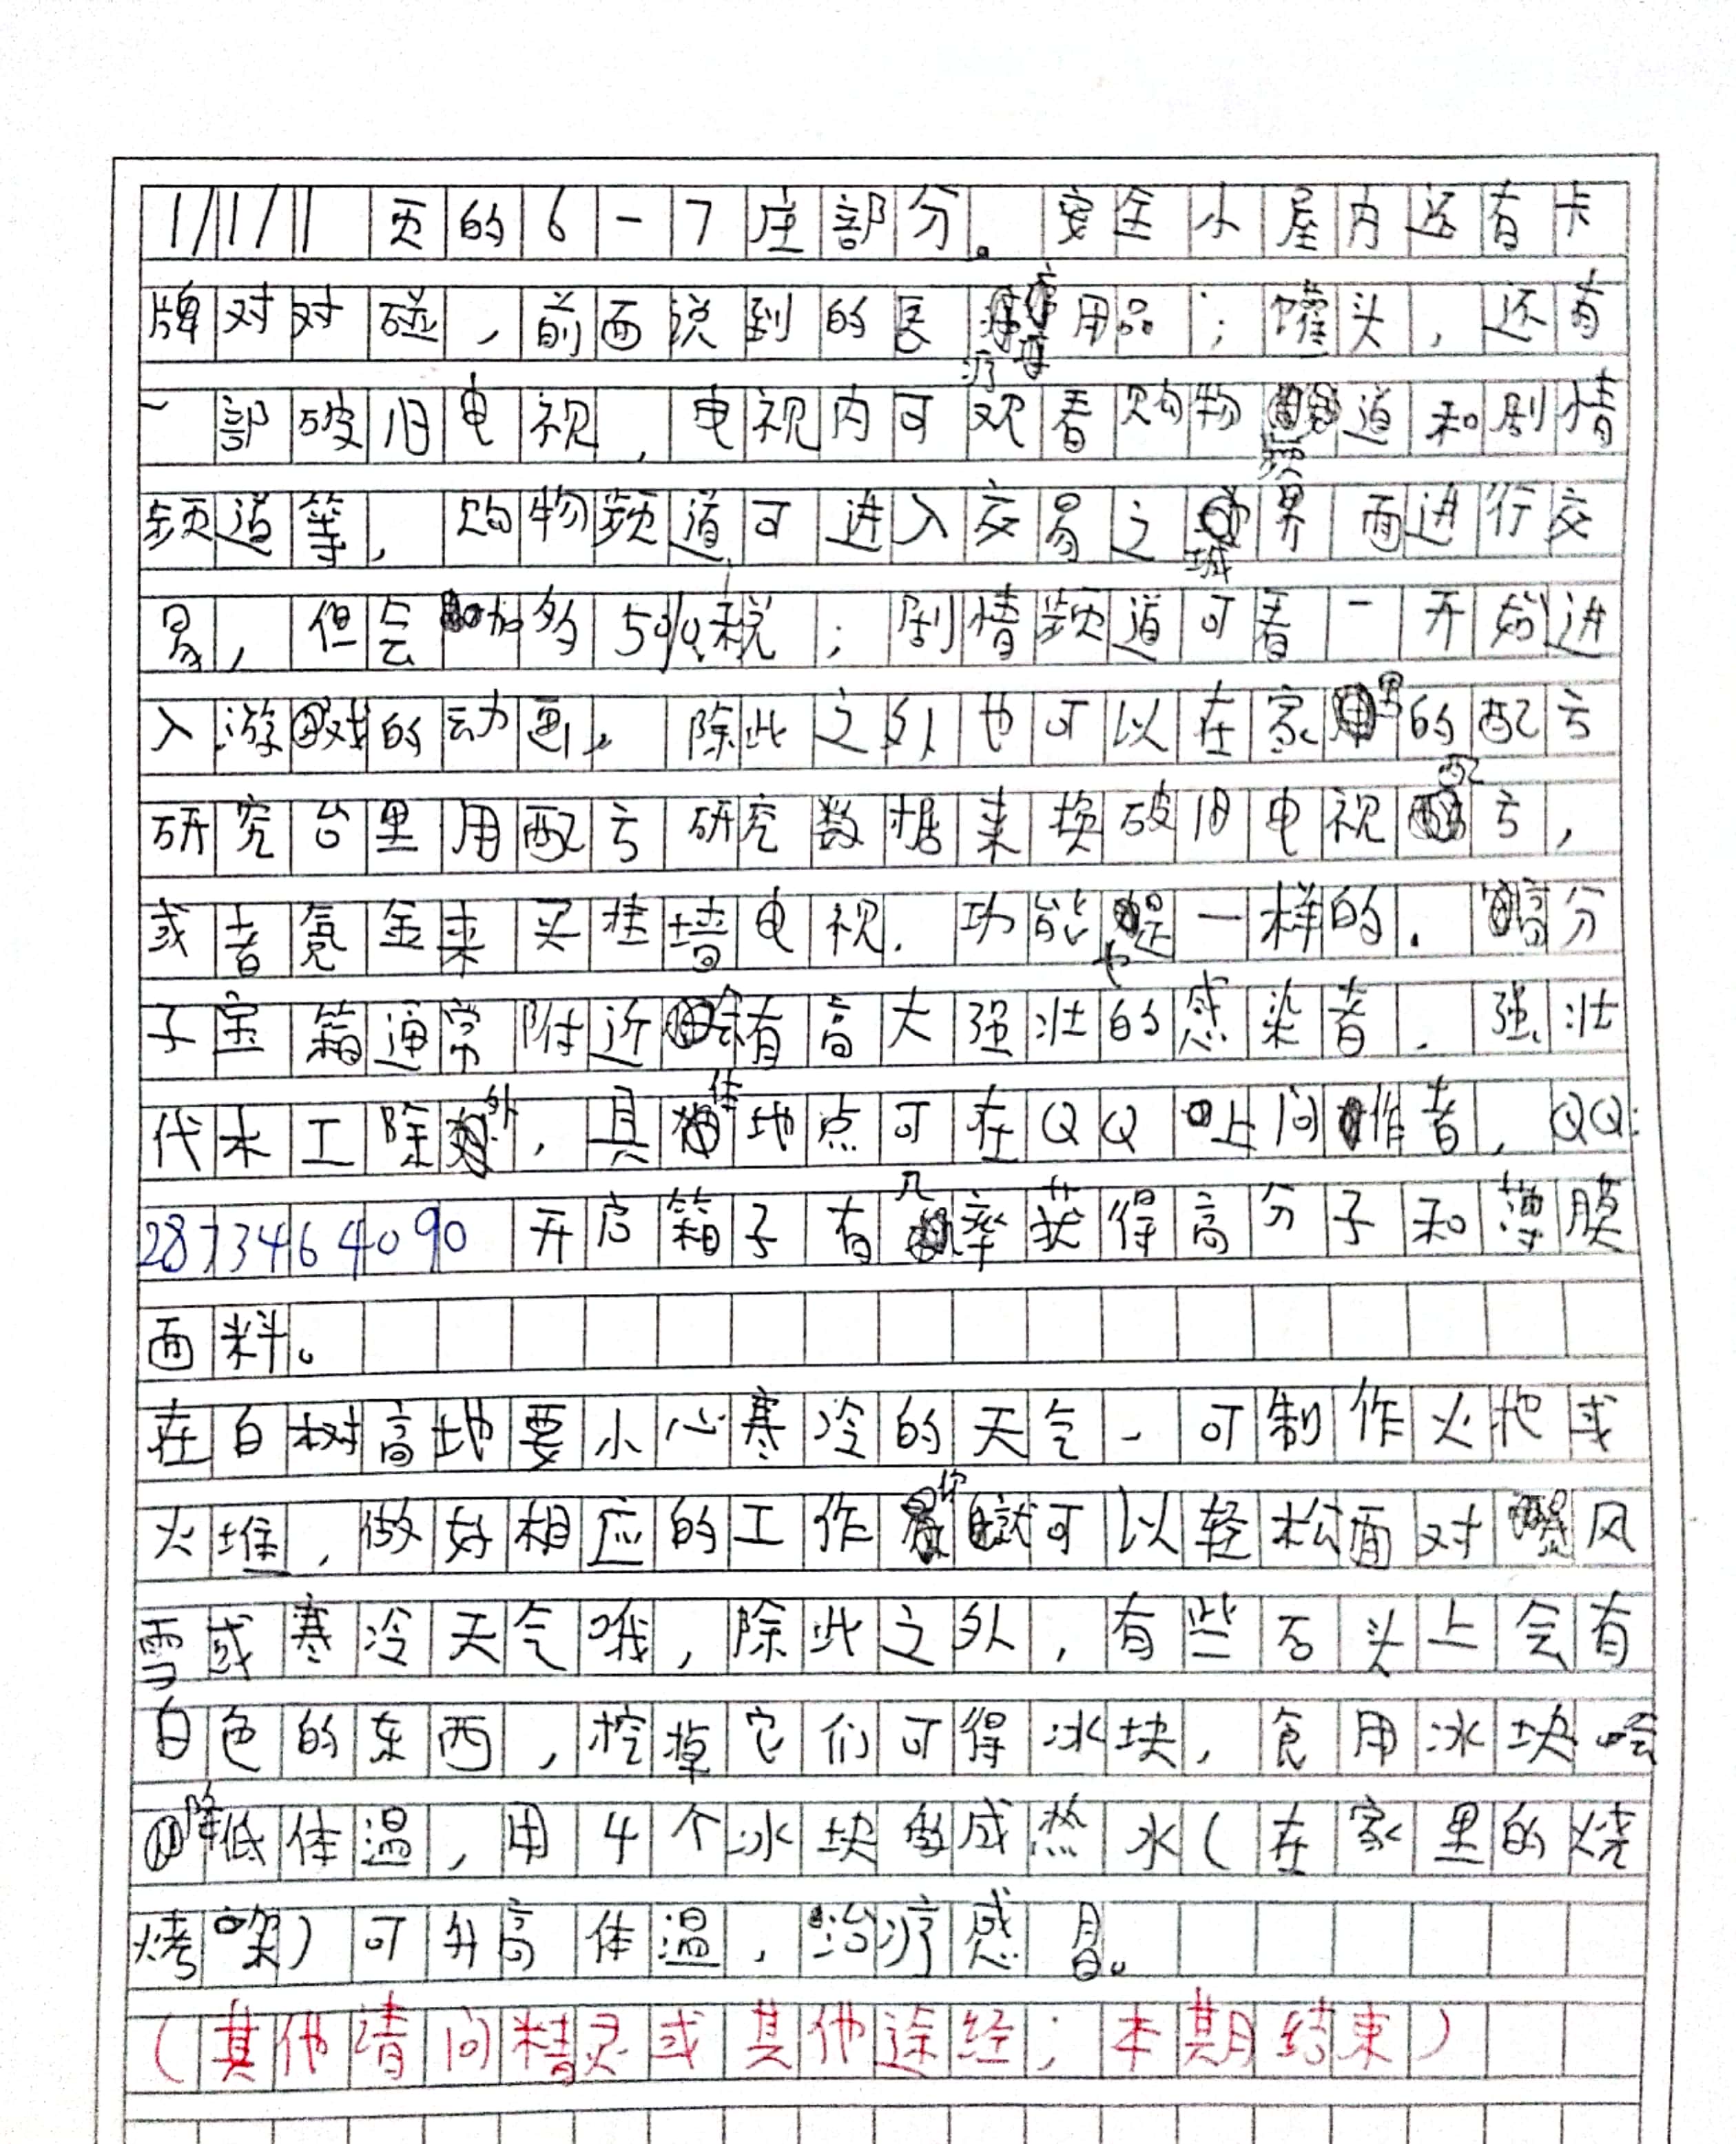 1/1/11页的6-7座部分。安全小屋内还有卡
牌对对碰,前面说到的医疗用品;罐头,还有
一部破旧电视,电视内可观看购物频道和剧情
频道等,购物频道可进入交易之城界面进行交
易,但会加多5%税;剧情频道可看一开始进
入游戏的动画。除此之外也可以在家里的配方
研究台里用配方研究数据来换破旧电视配方,
或者氪金来买挂墙电视.功能也是一样的.高分
子宝箱通常附近会有高大强壮的感染者.强壮
代木工除外,具体地点可在QQ上问作者,QQ:
2873464090开启箱子有几率获得高分子和薄膜
面料。
在白树高地要小心寒冷的天气,可制作火把或
火堆,做好相应的工作你就可以轻松面对暴风
雪或寒冷天气哦,除此之外,有些石头上会有
白色的东西,挖掉它们可得冰块,食用冰块会
降低体温,用4个冰块做成热水(在家里的烧
烤架)可升高体温,治疗感冒。
(其他请问精灵或其他途经;本期结束)